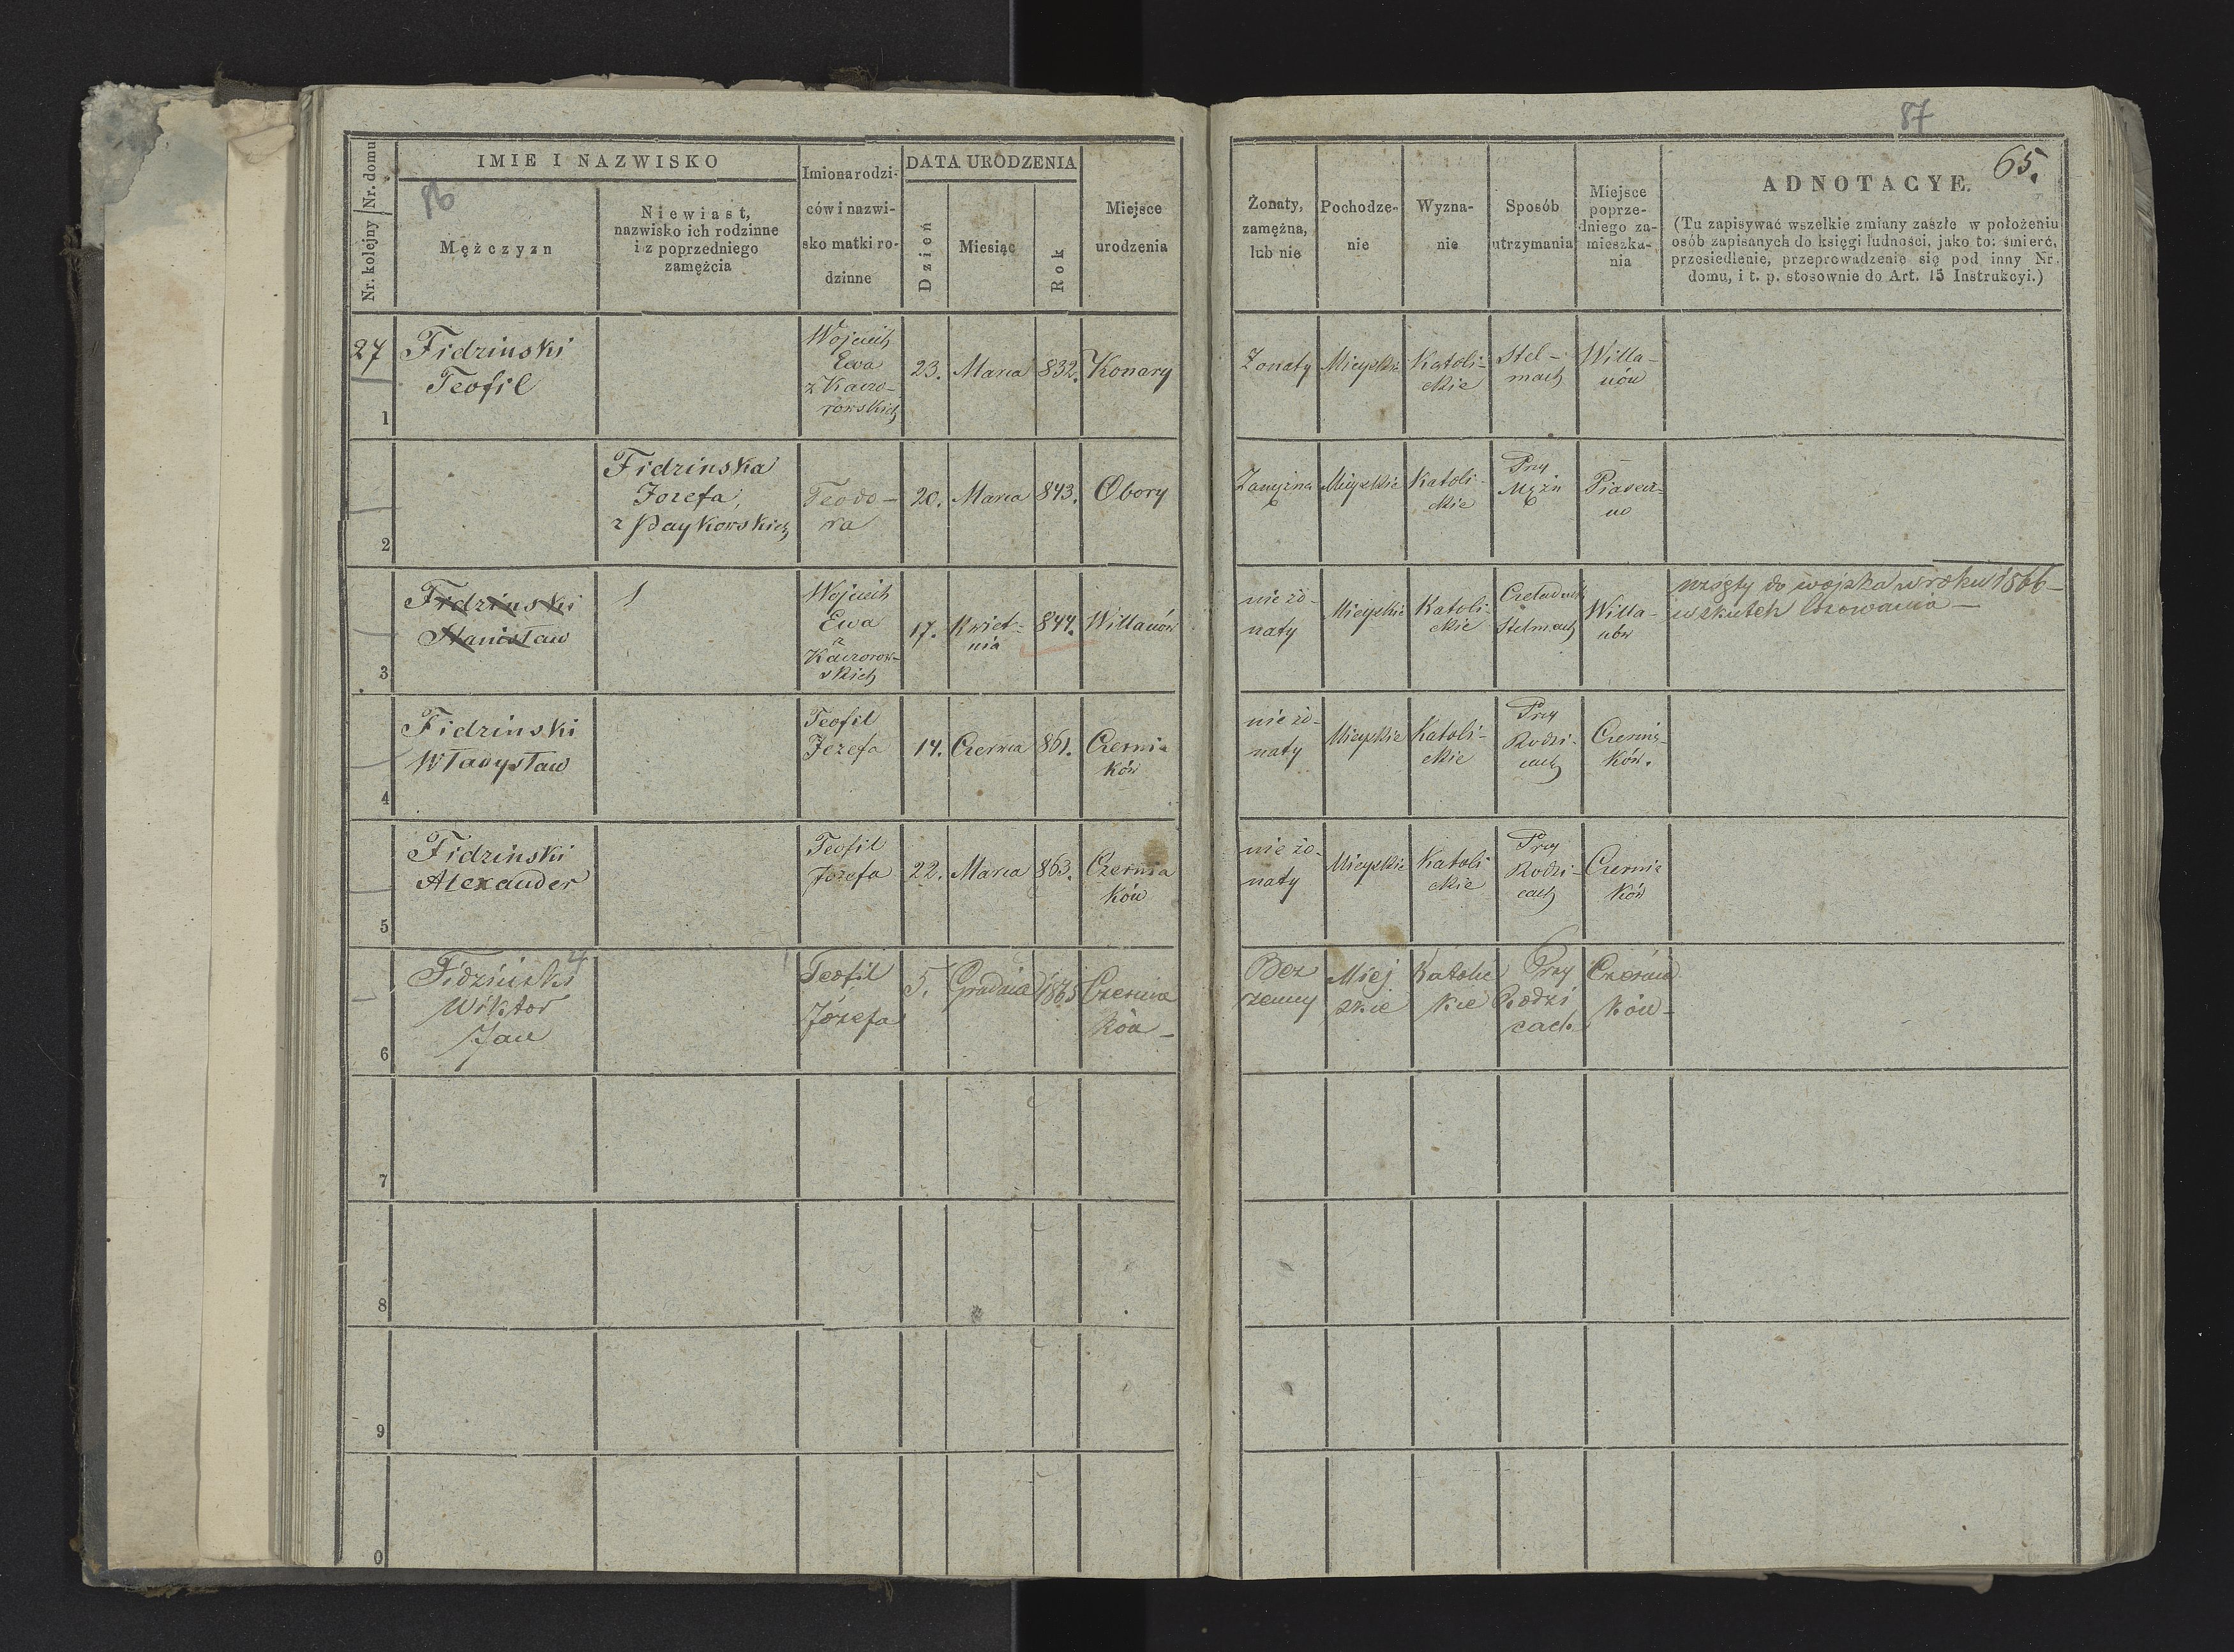 87
65.
Nr. kolejny Nr. domu
IMIE I NAZWISKO
86
Mężczyzn
Niewiast,
nazwisko ich rodzinne
i z poprzedniego
zamężcia
Imiona rodzi-
ców i nazwi-
sko matki ro-
dzinne
DATA URODZENIA
Dzień
Miesiąc
Rok
Miejsce
urodzenia
Żonaty,
zamężna,
lub nie
Pochodze-
nie
Wyzna-
nie
Sposób
utrzymania
Miejsce
poprze-
dniego za-
mieszka-
nia
ADNOTACYE.
(Tu zapisywać wszelkie zmiany zaszłe w położeniu
osób zapisanych do księgi ludności, jako to: śmierć,
przesiedlenie, przeprowadzenie się pod inny Nr.
domu, i t. p. stosownie do Art. 15 Instrukcyi.)
27
1
Fidzinski
Teofil
Wojciech
Ewa
z Kaczo-
rowskich
23. Marca 832. Konary
Żonaty Mieyskie
Katoli-
ckie
Stel-
mach
Willa-
nów
2
Fidzinska
Jozefa,
Teodo-
ra
20. Marca 843. Obory
Zamężna Mieyskie
Katoli-
ckie
Przy
Mężu
Piasecz-
no
3
Fidzinski
Stanisław
Wojciech
Ewa
z
Kaczorow-
skich
17. Kwiet-
nia
844. Willanów
nie żo-
naty
Mieyskie
Katoli-
ckie
Czeladnik
Stelmach
Willa-
nów
wzięty do wojska w roku 1866 -
wskutek losowania -
4
Fidzinski
Władysław
Teofil
Jozefa
14. Czerwca 861. Czernia
ków
nie żo-
naty
Mieyskie
Katoli-
ckie
Przy
Rodzi-
cach
Czernia-
ków.
5
Fidzinski
Alexander
Teofil
Jozefa
22. Marca 863. Czernia
ków
nie żo-
naty
Mieyskie
Katoli
ckie
Przy
Rodzi-
cach
Czernia
ków
6
Fidzinski
Wiktor
Jan
Teofil
Józefa
5. Grudnia 1865 Czernia
ków -
Bez
żenny
Miej
skie
Katolic
kie
Przy
Rodzi
cach
Czernia
ków -
7
8
9
0